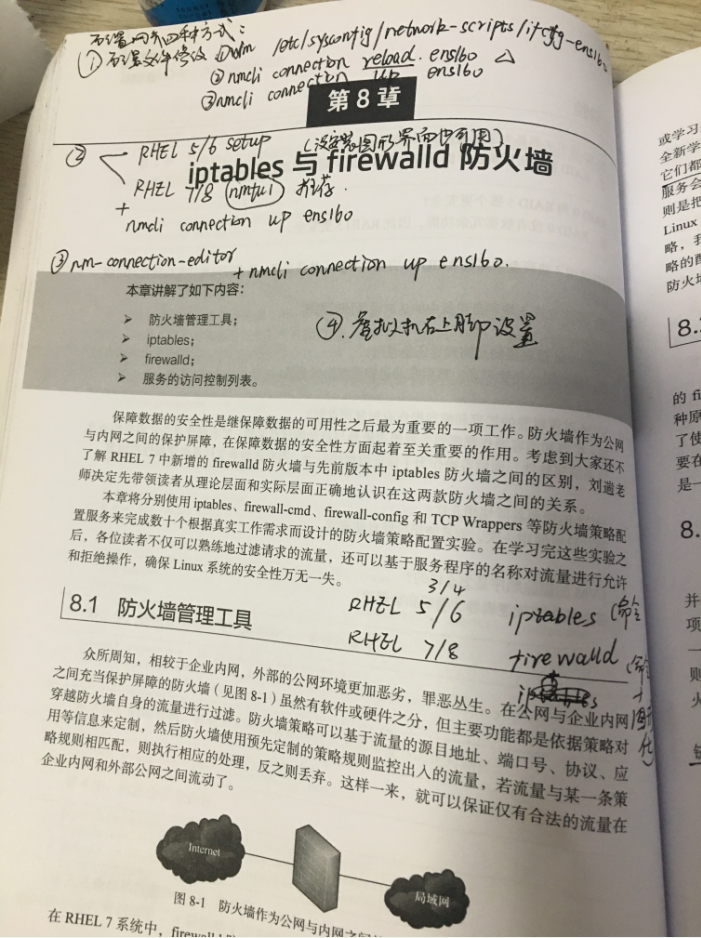 配置网卡四种方式：
① 配置文件修改 ①vim /etc/sysconfig/network-scripts/ifcfg-ens160
②nmcli connection reload. ens160 △
③nmcli connection up ens160
第8章
② RHEL 5/6 setup (没安装图形界面也可用)
iptables 与 firewalld 防火墙
RHEL 7/8 nmtui 推荐.
+
nmcli connection up ens160
③ nm-connection-editor
+ nmcli connection up ens160.
本章讲解了如下内容：
➢ 防火墙管理工具；
➢ iptables；
➢ firewalld；
➢ 服务的访问控制列表。
④.虚拟机右上脚设置
保障数据的安全性是继保障数据的可用性之后最为重要的一项工作。防火墙作为公网
与内网之间的保护屏障，在保障数据的安全性方面起着至关重要的作用。考虑到大家还不
了解 RHEL 7 中新增的 firewalld 防火墙与先前版本中 iptables 防火墙之间的区别，刘遄老
师决定先带领读者从理论层面和实际层面正确地认识在这两款防火墙之间的关系。
本章将分别使用 iptables、firewall-cmd、firewall-config 和 TCP Wrappers 等防火墙策略配
置服务来完成数十个根据真实工作需求而设计的防火墙策略配置实验。在学习完这些实验之
后，各位读者不仅可以熟练地过滤请求的流量，还可以基于服务程序的名称对流量进行允许
和拒绝操作，确保 Linux 系统的安全性万无一失。
3/4
RHEL 5/6 iptables (命令
8.1 防火墙管理工具
RHEL 7/8 firewalld (命令
+
图形
化)
众所周知，相较于企业内网，外部的公网环境更加恶劣，罪恶丛生。在公网与企业内网
之间充当保护屏障的防火墙（见图 8-1）虽然有软件或硬件之分，但主要功能都是依据策略对
穿越防火墙自身的流量进行过滤。防火墙策略可以基于流量的源目地址、端口号、协议、应
用等信息来定制，然后防火墙使用预先定制的策略规则监控出入的流量，若流量与某一条策
略规则相匹配，则执行相应的处理，反之则丢弃。这样一来，就可以保证仅有合法的流量在
企业内网和外部公网之间流动了。
Internet
局域网
图 8-1 防火墙作为公网与内网之间
在 RHEL 7 系统中，firewall
或学习
全新学
它们都
服务会
则是把
Linux
略，
略的
防火
8.
的 fi
种原
了使
要在
是一
8.
并
项
则
火